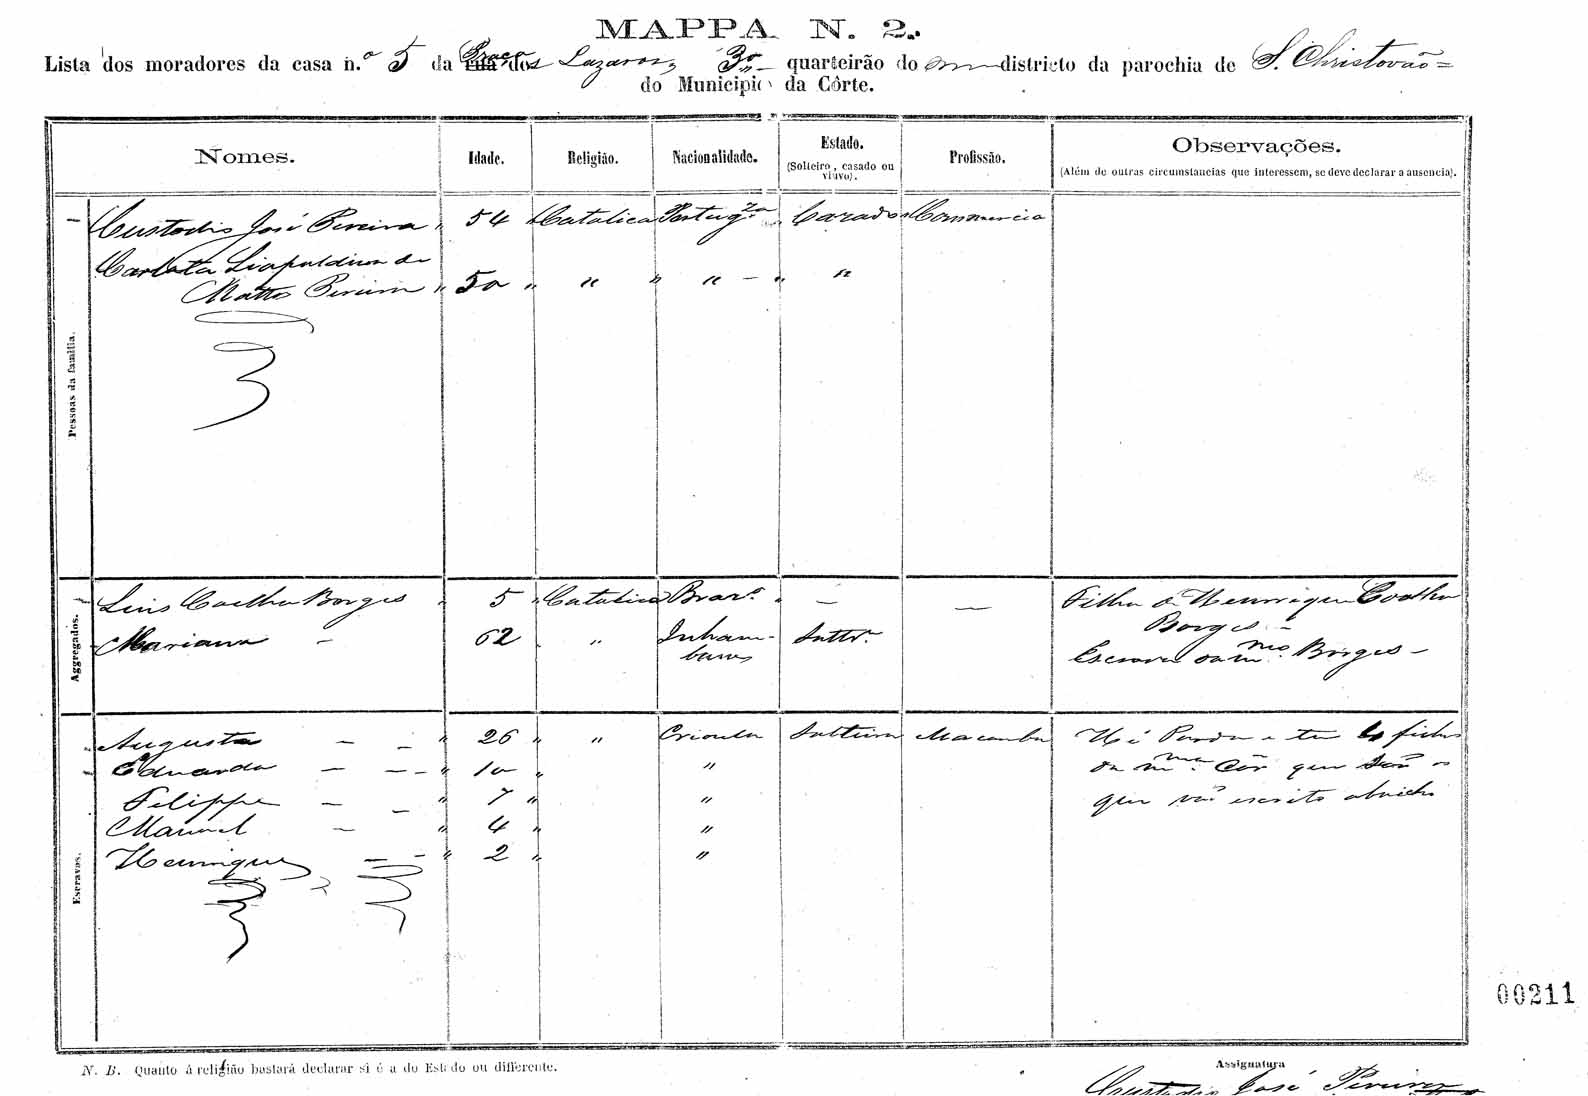 MAPPA N. 2.
Lista dos moradores da casa n.º 5 da Praça dos Lazaros, 3º quarteirão do districto da parochia de S. Christovão
do Municipio da Côrte.
Nomes. Idade. Religião. Nacionalidade. Estado. (Solteiro, casado ou viuvo). Profissão. Observações. (Além de outras circumstancias que interessem, se deve declarar a ausencia).
Pessoas da familia.
Custodio José Pereira " 54 " Catolica Portugza " Cazado Commercio
Carlota Liopuldina de
Mattos Pereira " 50 " " " " — " "
Aggregados.
Luis Coelho Borges " 5 " Catolica Brar.º " — —
Filho de Henrique Coelho
Borges —
Mariana — 62 " Inham-
banes Solt.ra
Escrava do mmo. Borges —
Escravos.
Augusta — — " 26 " " Crioula Solteira Mucamba
Eduardo — — — " 10 " "
Filippe — — " 7 " "
Manoel — " 4 " "
Henrique — — " 2 " "
Hé Parda e tem 4 filhos
da mma. Côr que são os
que vão escrito abaicho
00211
N. B. Quanto á religião bastará declarar si é a do Estado ou differente.
Assignatura
Custodio José Pereira